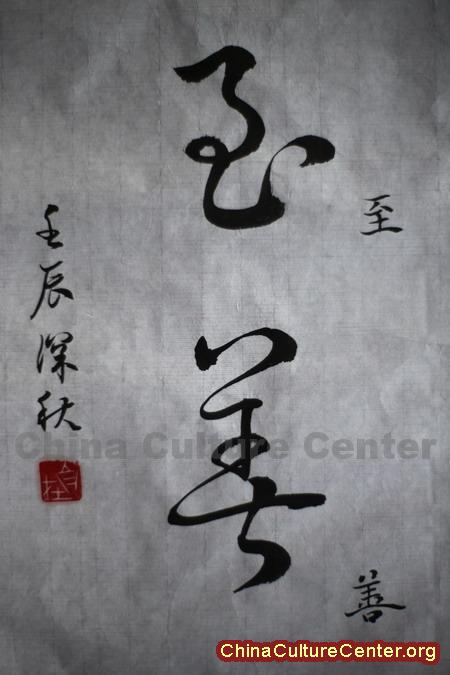 至善
至
善
壬辰深秋
China Culture Center
ChinaCultureCenter.org